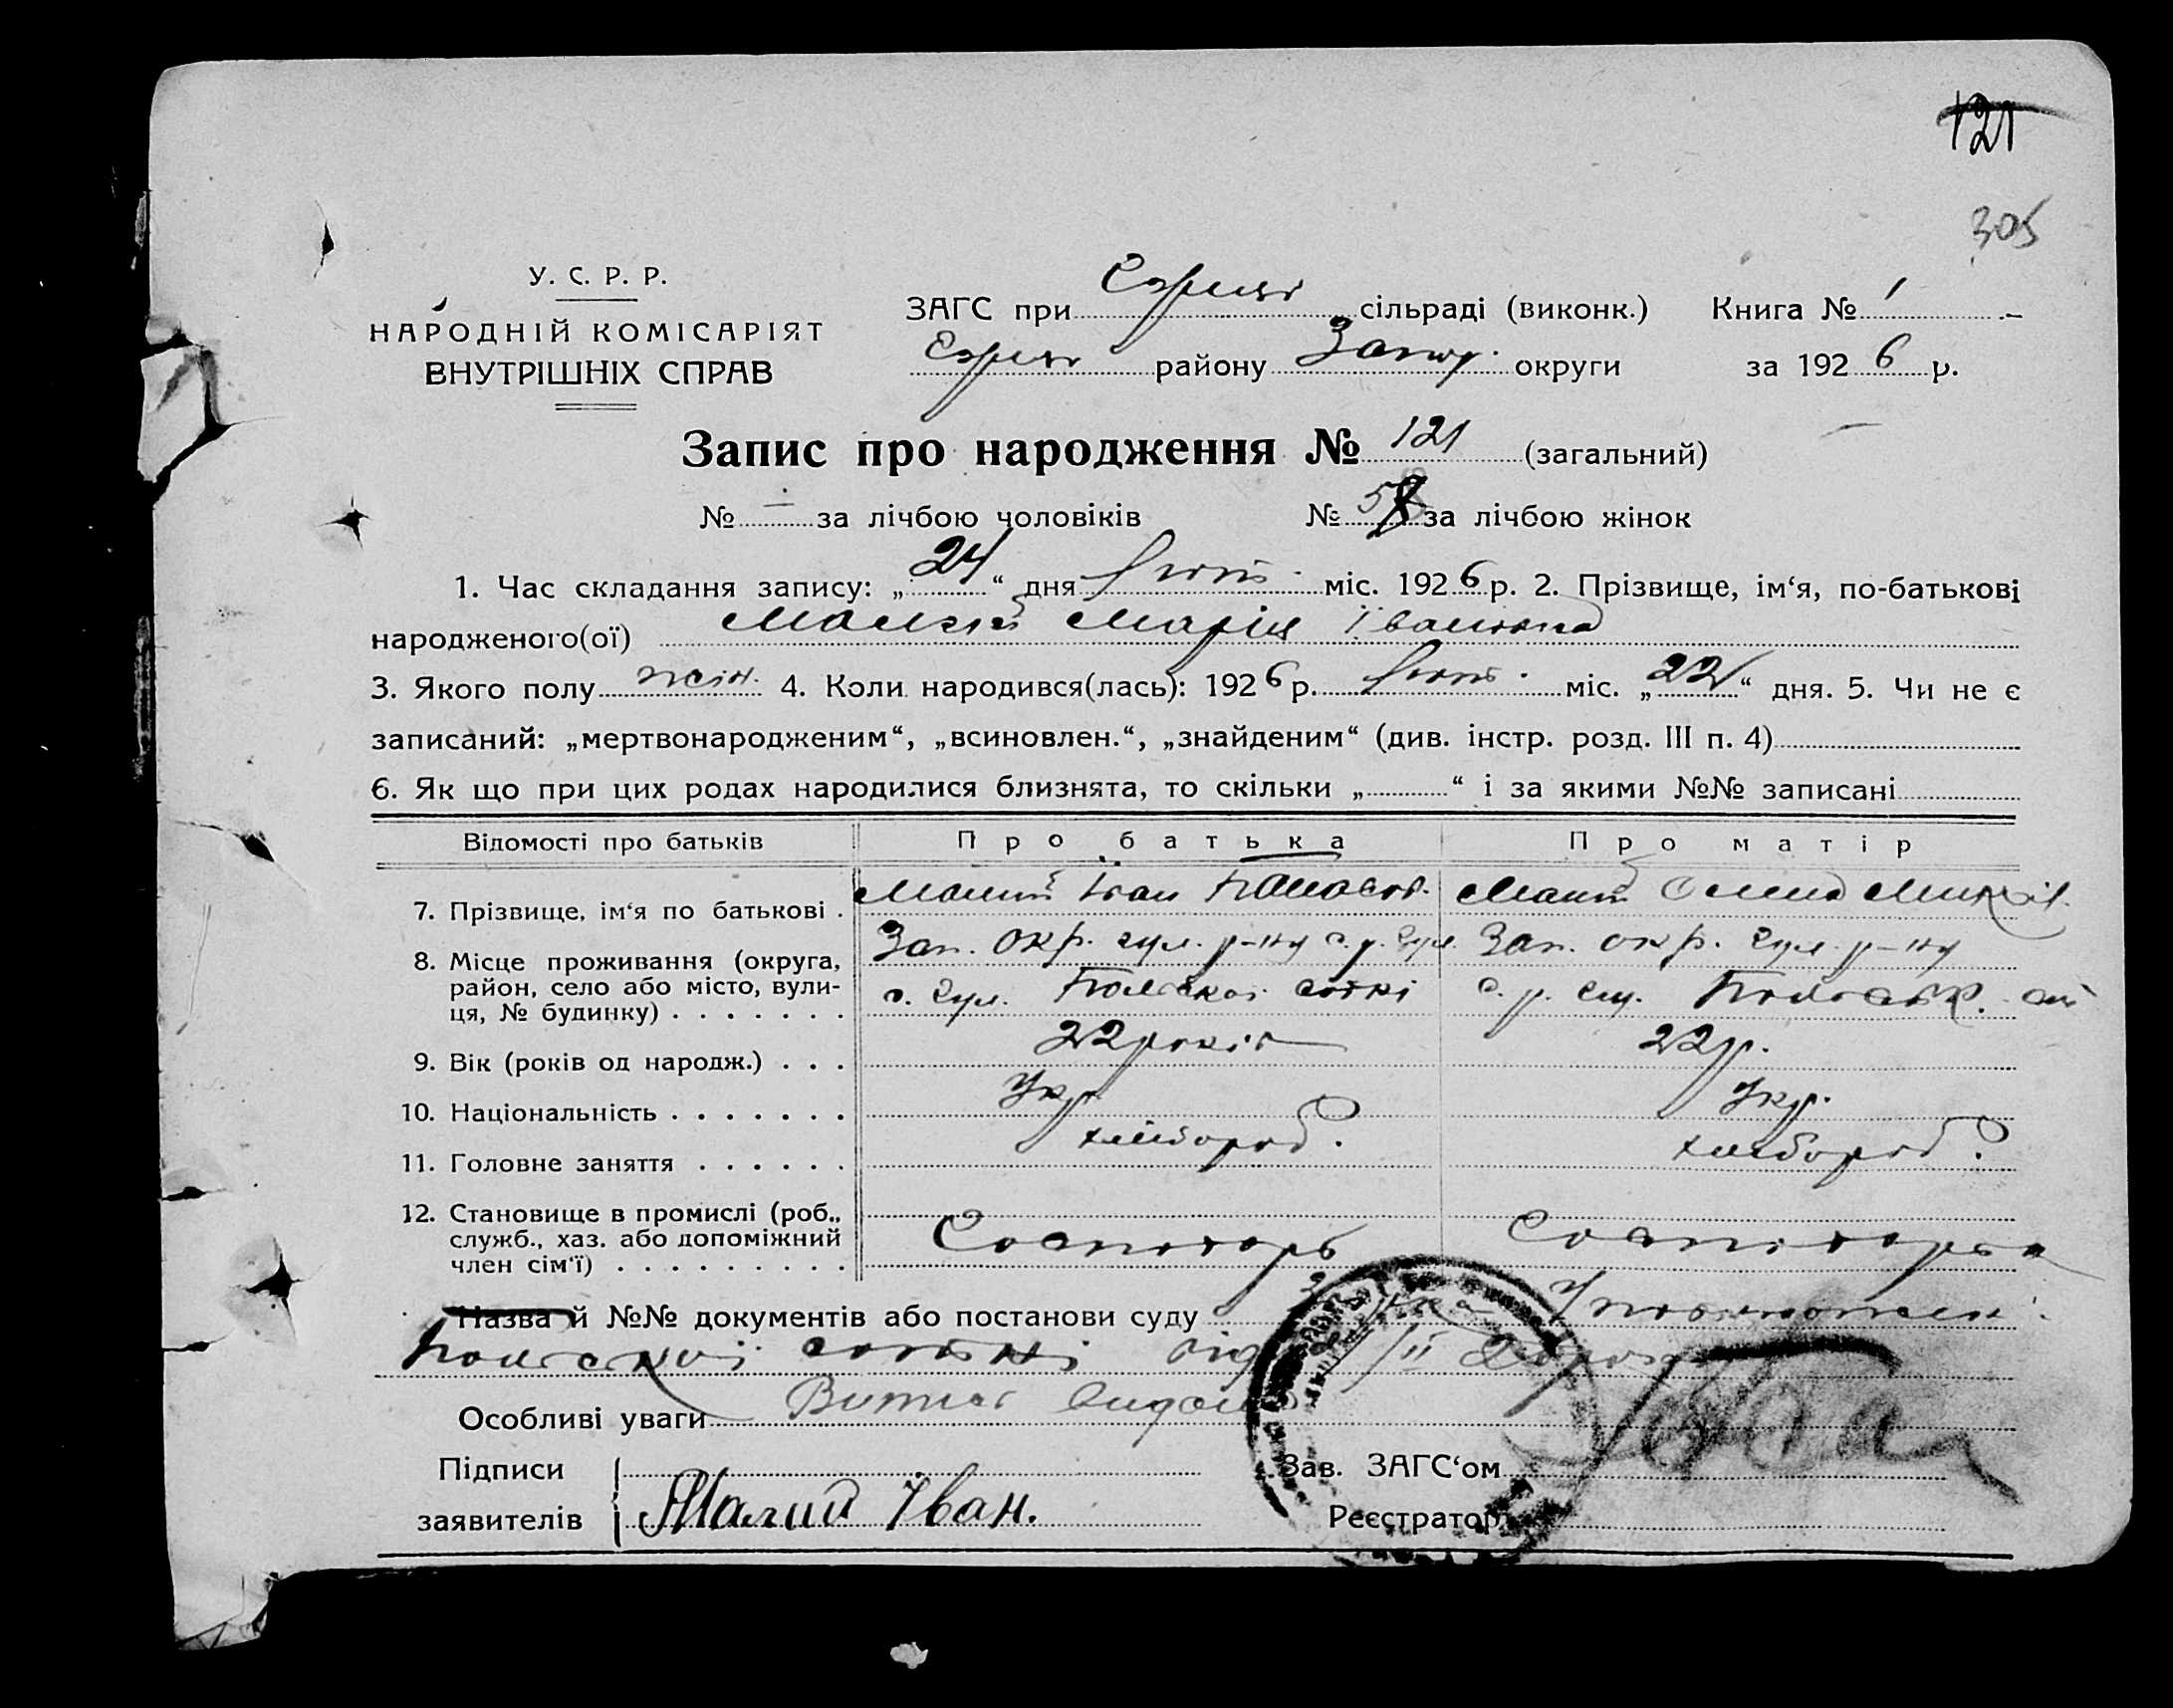 121
305
У. С. Р. Р.
НАРОДНІЙ КОМІСАРІЯТ
ВНУТРІШНІХ СПРАВ
ЗАГС при сільраді (виконк.) Книга № 1
району Запор. округи за 1926 р.
Запис про народження № 121 (загальний)
№ – за лічбою чоловіків № 58 за лічбою жінок
1. Час складання запису: „24“ дня лют. міс. 1926 р. 2. Прізвище, ім‘я, по-батькові
народженого(ої) Малий Марія Івановна
3. Якого полу жін. 4. Коли народився(лась): 1926 р. лют. міс. „22“ дня. 5. Чи не є
записаний: „мертвонародженим“, „всиновлен.“, „знайденим“ (див. інстр. розд. III п. 4)
6. Як що при цих родах народилися близнята, то скільки „ “ і за якими №№ записані
Відомості про батьків Про батька Про матір
7. Прізвище, ім‘я по батькові . Малий Іван Панасов. Малий
8. Місце проживання (округа, Зап. окр. гул. р-ну с. р. Гул. Зап. окр. гул. р-ну
район, село або місто, вули- с. Гул. сотні с. р. Гул.
ця, № будинку) . . . . . . .
9. Вік (років од народж.) . . . 22 років 22 р.
10. Національність . . . . . . . Укр. Укр.
11. Головне заняття . . . . . . хлібороб. хлібороб.
12. Становище в промислі (роб.,
служб., хаз. або допоміжний Госпотарь Госпотарка
член сім‘ї) . . . . . . . . .
Назва й №№ документів або постанови суду
сотні від
Особливі уваги Витяг видано
Підписи Зав. ЗАГС‘ом
заявителів Малий Іван. Реєстратор